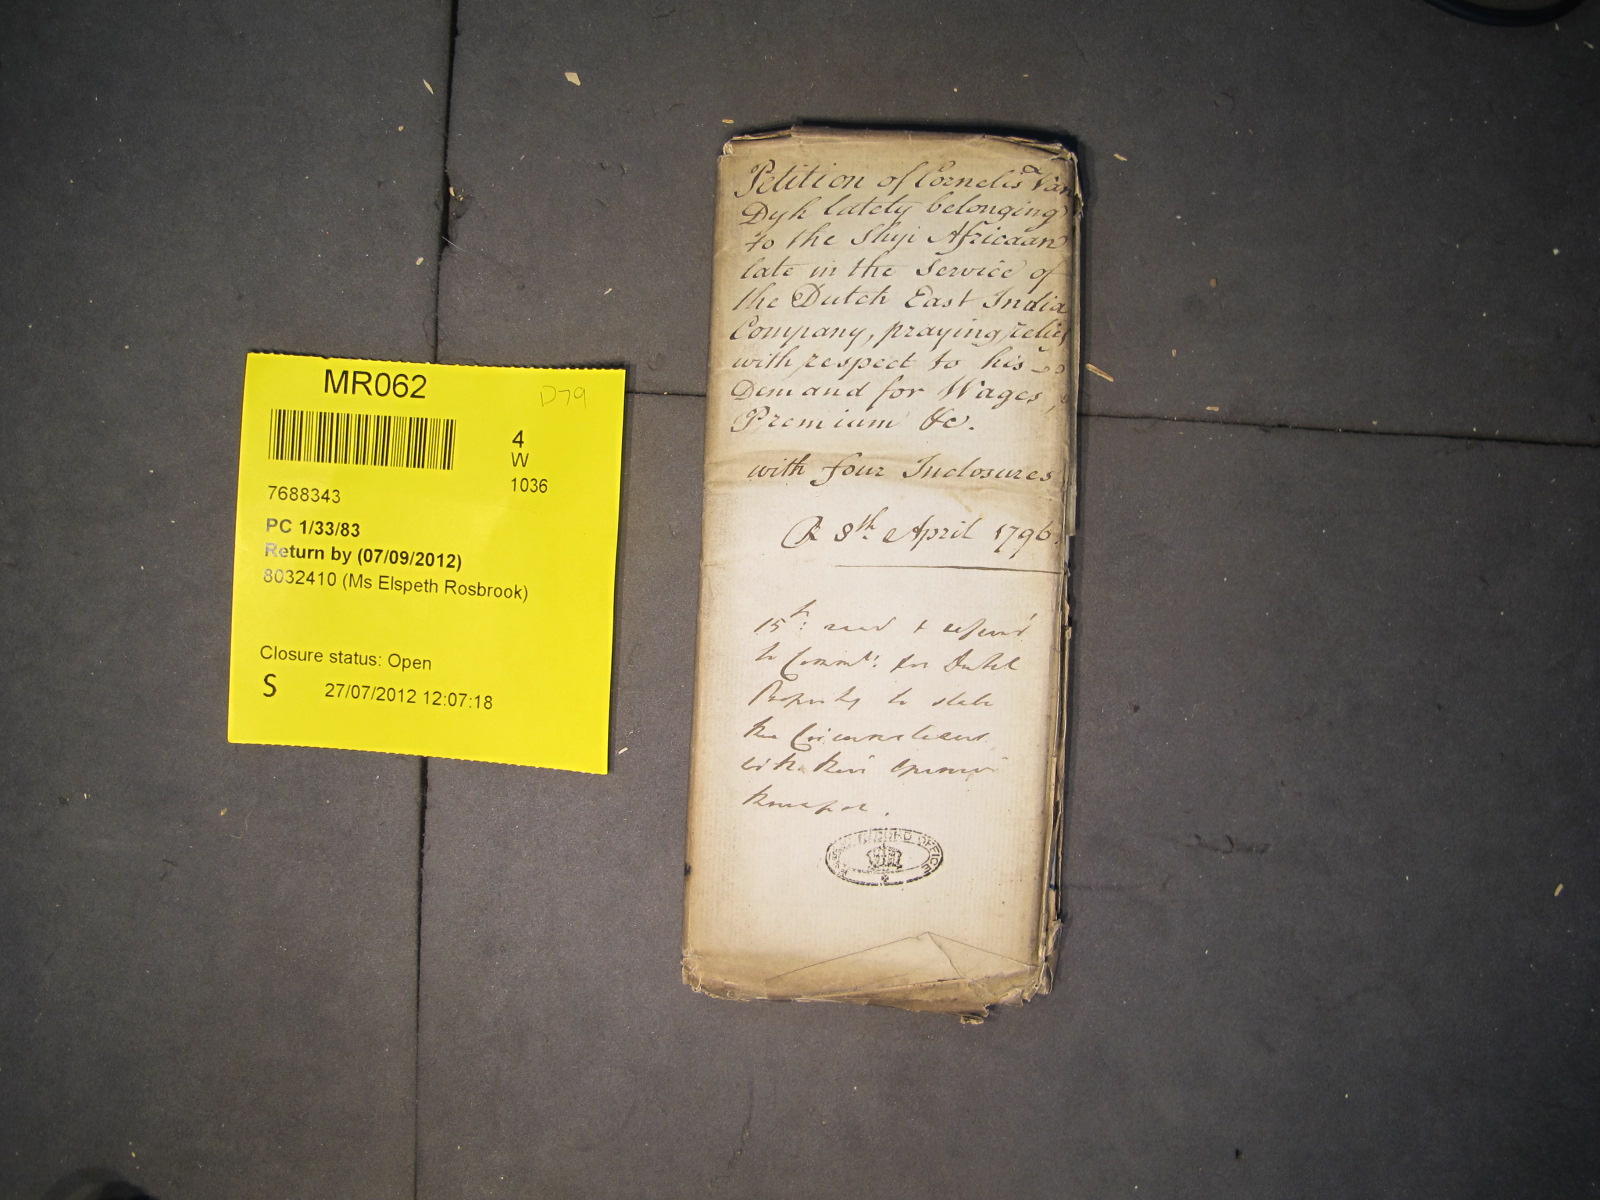 MR062
D79
4
W
1036
7688343
PC 1/33/83
Return by (07/09/2012)
8032410 (Ms Elspeth Rosbrook)
Closure status: Open
S 27/07/2012 12:07:18
Petition of Cornelis Van
Dyk lately belonging
to the Ship Africaan
late in the Service of
the Dutch East India
Company, praying relief
with respect to his
Demand for Wages,
Premium &c.
with four Inclosures
R 8th April 1796.
15th: read & referred
to Commrs: for Dutch
Property to state
the Circumstances
with their opinion
thereupon.
RECORD OFFICE